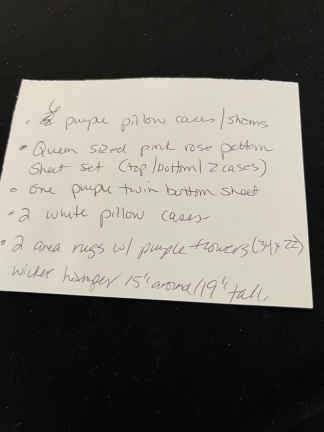 • 6 purple pillow cases/shams
• Queen sized pink rose pattern
sheet set (top/bottom/2 cases)
• one purple twin bottom sheet
• 2 white pillow cases
• 2 area rugs w/ purple flowers (34x22)
wicker hamper 15" around/19" tall.